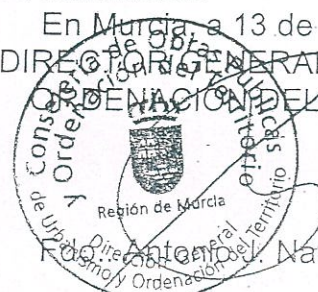 En Murcia, a 13 de
DIRECTOR GENERAL
ORDENACIÓN DEL
Consejería de Obras Públicas
y Ordenación del Territorio
Región de Murcia
Dirección General
de Urbanismo y Ordenación del Territorio
Fdo.: Antonio J. Na